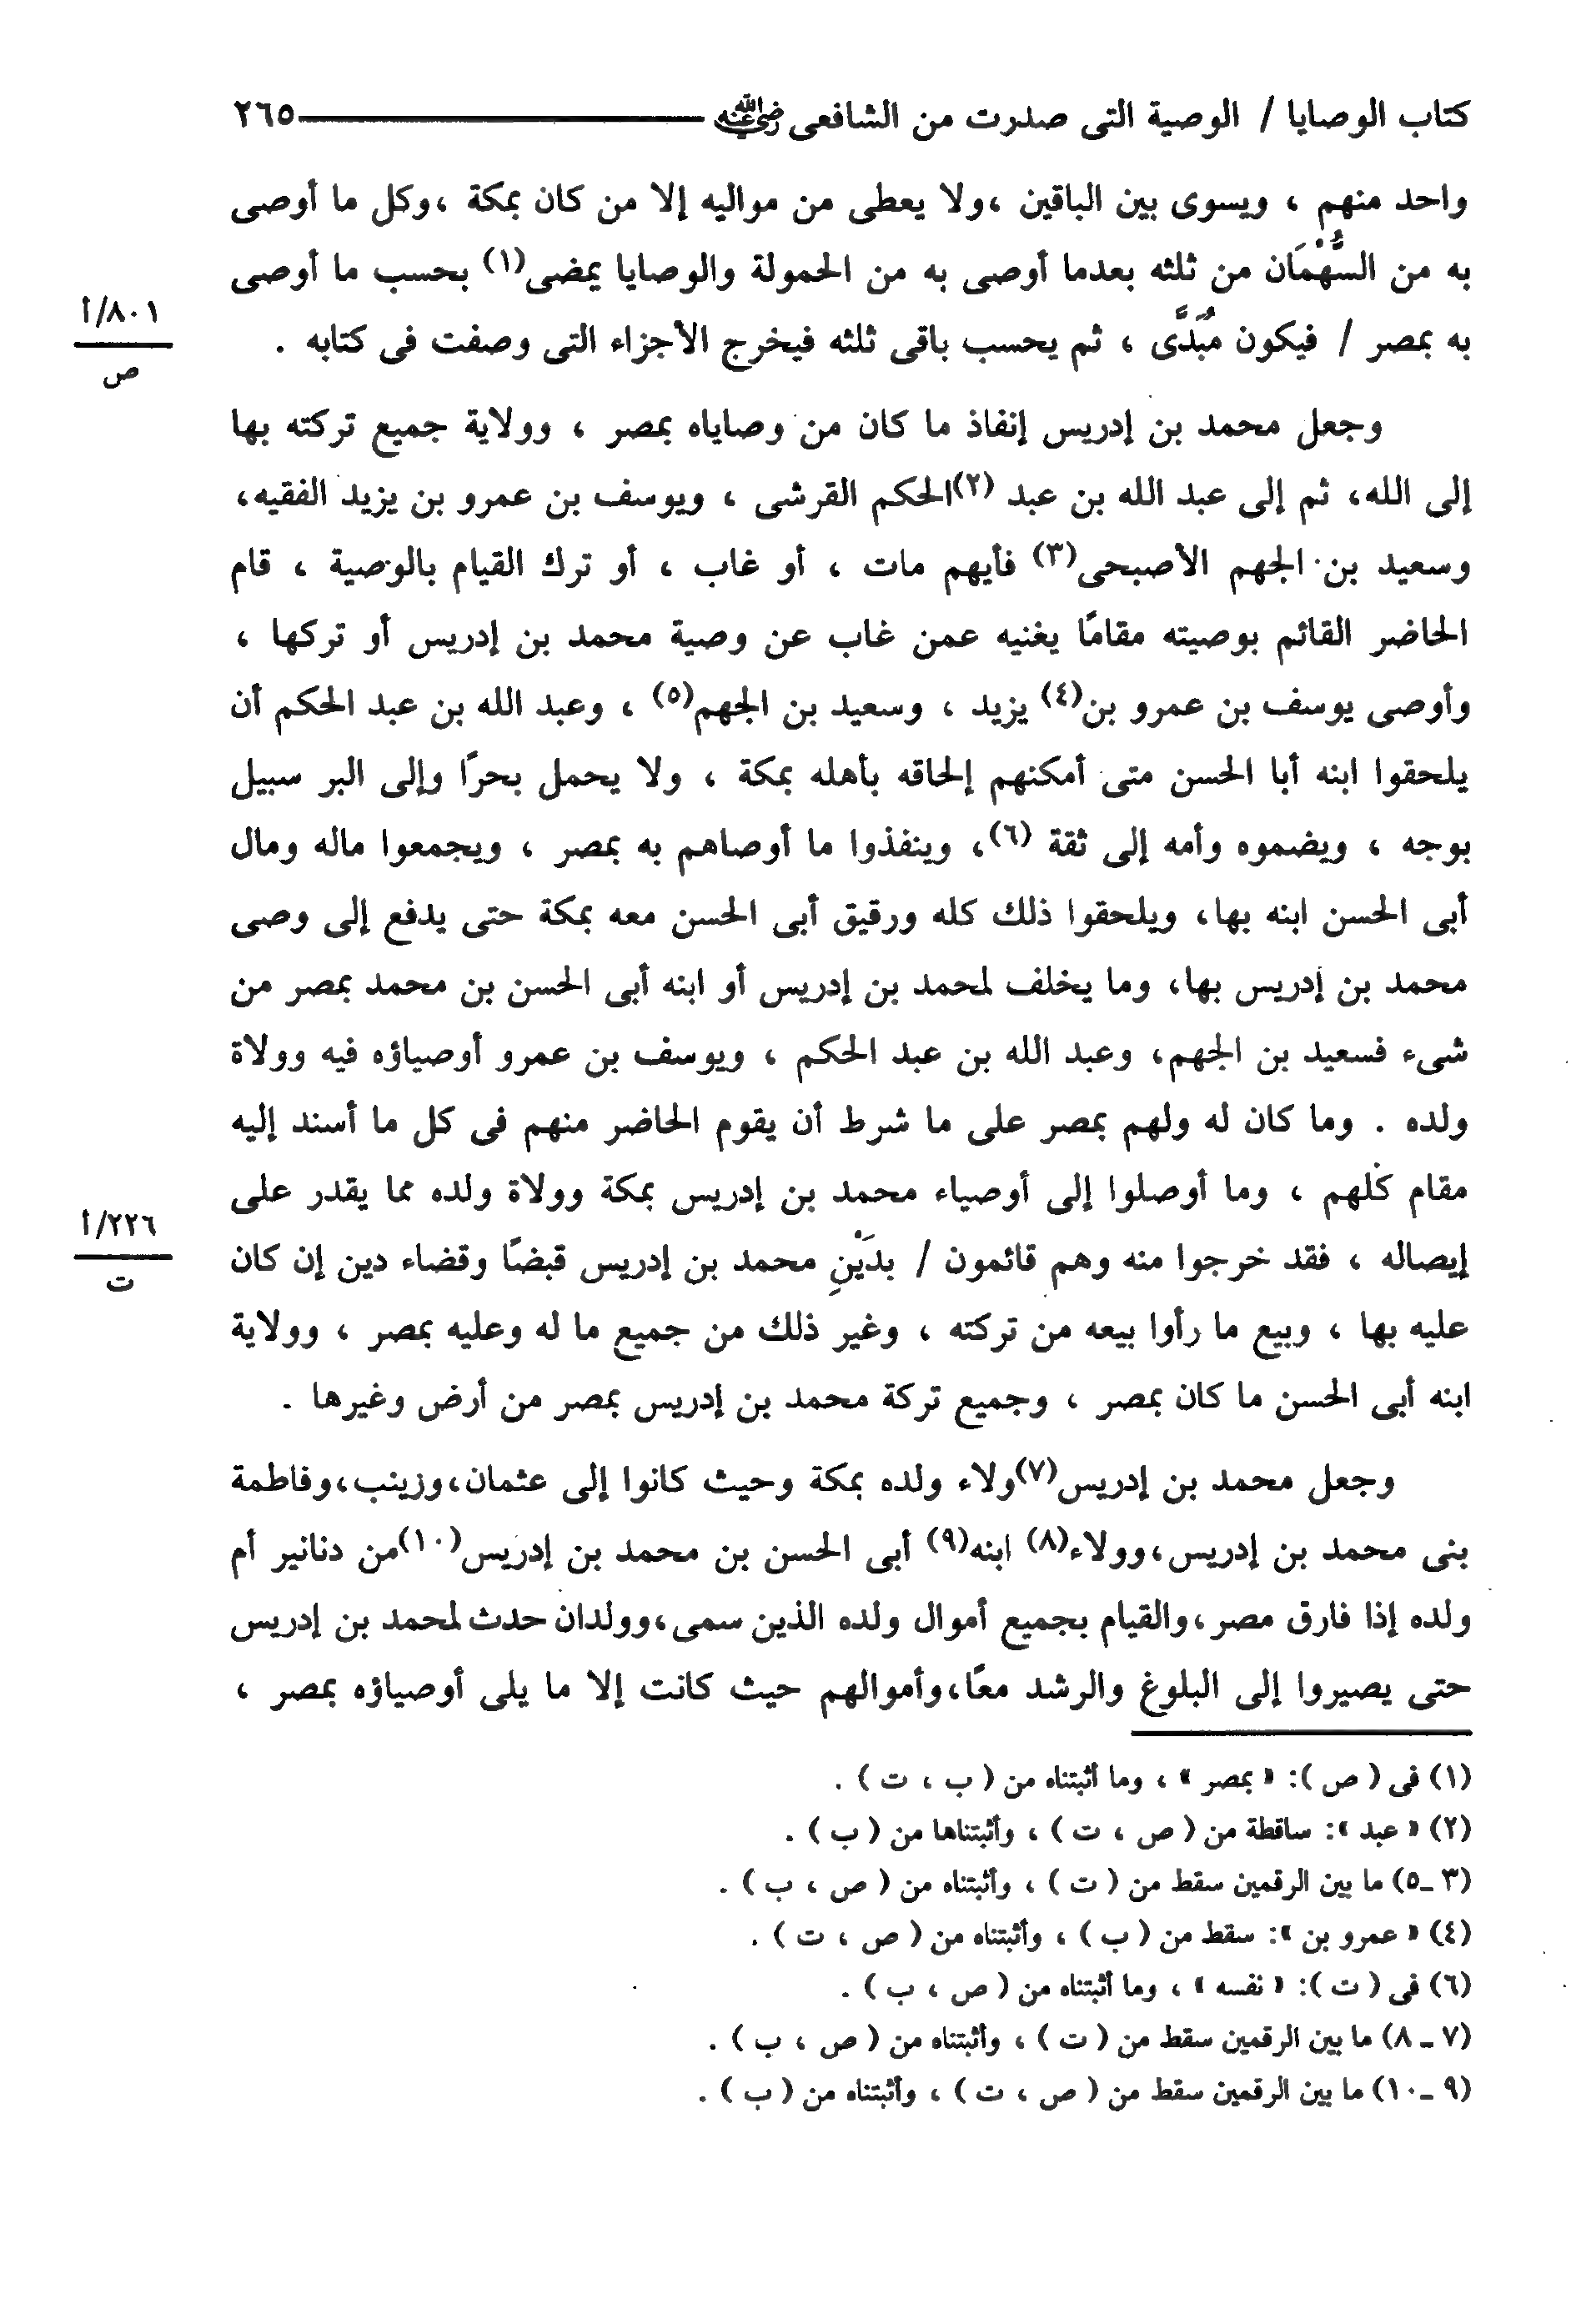 كتاب الوصايا / الوصية التى صدرت من الشافعى رضي الله عنه ٢٦٥
واحد منهم ، ويسوى بين الباقين ،ولا يعطى من مواليه إلا من كان بمكة ،وكل ما أوصى
به من السُّهْمَان من ثلثه بعدما أوصى به من الحمولة والوصايا يمضى(١) بحسب ما أوصى
٨٠١/أ
ص
به بمصر / فيكون مُبَدًّى ، ثم يحسب باقى ثلثه فيخرج الأجزاء التى وصفت فى كتابه .
وجعل محمد بن إدريس إنفاذ ما كان من وصاياه بمصر ، وولاية جميع تركته بها
إلى الله، ثم إلى عبد الله بن عبد (٢)الحكم القرشى ، ويوسف بن عمرو بن يزيد الفقيه،
وسعيد بن الجهم الأصبحى(٣) فأيهم مات ، أو غاب ، أو ترك القيام بالوصية ، قام
الحاضر القائم بوصيته مقامًا يغنيه عمن غاب عن وصية محمد بن إدريس أو تركها ،
وأوصى يوسف بن عمرو بن(٤) يزيد ، وسعيد بن الجهم(٥) ، وعبد الله بن عبد الحكم أن
يلحقوا ابنه أبا الحسن متى أمكنهم إلحاقه بأهله بمكة ، ولا يحمل بحرًا وإلى البر سبيل
بوجه ، ويضموه وأمه إلى ثقة (٦)، وينفذوا ما أوصاهم به بمصر ، ويجمعوا ماله ومال
أبى الحسن ابنه بها، ويلحقوا ذلك كله ورقيق أبى الحسن معه بمكة حتى يدفع إلى وصى
محمد بن إدريس بها، وما يخلف لمحمد بن إدريس أو ابنه أبى الحسن بن محمد بمصر من
شىء فسعيد بن الجهم، وعبد الله بن عبد الحكم ، ويوسف بن عمرو أوصياؤه فيه وولاة
ولده . وما كان له ولهم بمصر على ما شرط أن يقوم الحاضر منهم فى كل ما أسند إليه
مقام كلهم ، وما أوصلوا إلى أوصياء محمد بن إدريس بمكة وولاة ولده مما يقدر على
٢٢٦/أ
ت
إيصاله ، فقد خرجوا منه وهم قائمون / بدَيْنِ محمد بن إدريس قبضًا وقضاء دين إن كان
عليه بها ، وبيع ما رأوا بيعه من تركته ، وغير ذلك من جميع ما له وعليه بمصر ، وولاية
ابنه أبى الحسن ما كان بمصر ، وجميع تركة محمد بن إدريس بمصر من أرض وغيرها .
وجعل محمد بن إدريس(٧)ولاء ولده بمكة وحيث كانوا إلى عثمان،وزينب،وفاطمة
بنى محمد بن إدريس،وولاء(٨) ابنه(٩) أبى الحسن بن محمد بن إدريس(١٠)من دنانير أم
ولده إذا فارق مصر،والقيام بجميع أموال ولده الذين سمى،وولدان حدث لمحمد بن إدريس
حتى يصيروا إلى البلوغ والرشد معًا،وأموالهم حيث كانت إلا ما يلى أوصياؤه بمصر ،
(١) فى ( ص ): « بمصر » ، وما أثبتناه من ( ب ، ت ) .
(٢) « عبد »: ساقطة من ( ص ، ت ) ، وأثبتناها من ( ب ) .
(٣ _٥) ما بين الرقمين سقط من ( ت ) ، وأثبتناه من ( ص ، ب ) .
(٤) « عمرو بن »: سقط من ( ب ) ، وأثبتناه من ( ص ، ت ) .
(٦) فى ( ت ): « نفسه » ، وما أثبتناه من ( ص ، ب ) .
(٧ _ ٨) ما بين الرقمين سقط من ( ت ) ، وأثبتناه من ( ص ، ب ) .
(٩ _١٠) ما بين الرقمين سقط من ( ص ، ت ) ، وأثبتناه من ( ب ) .